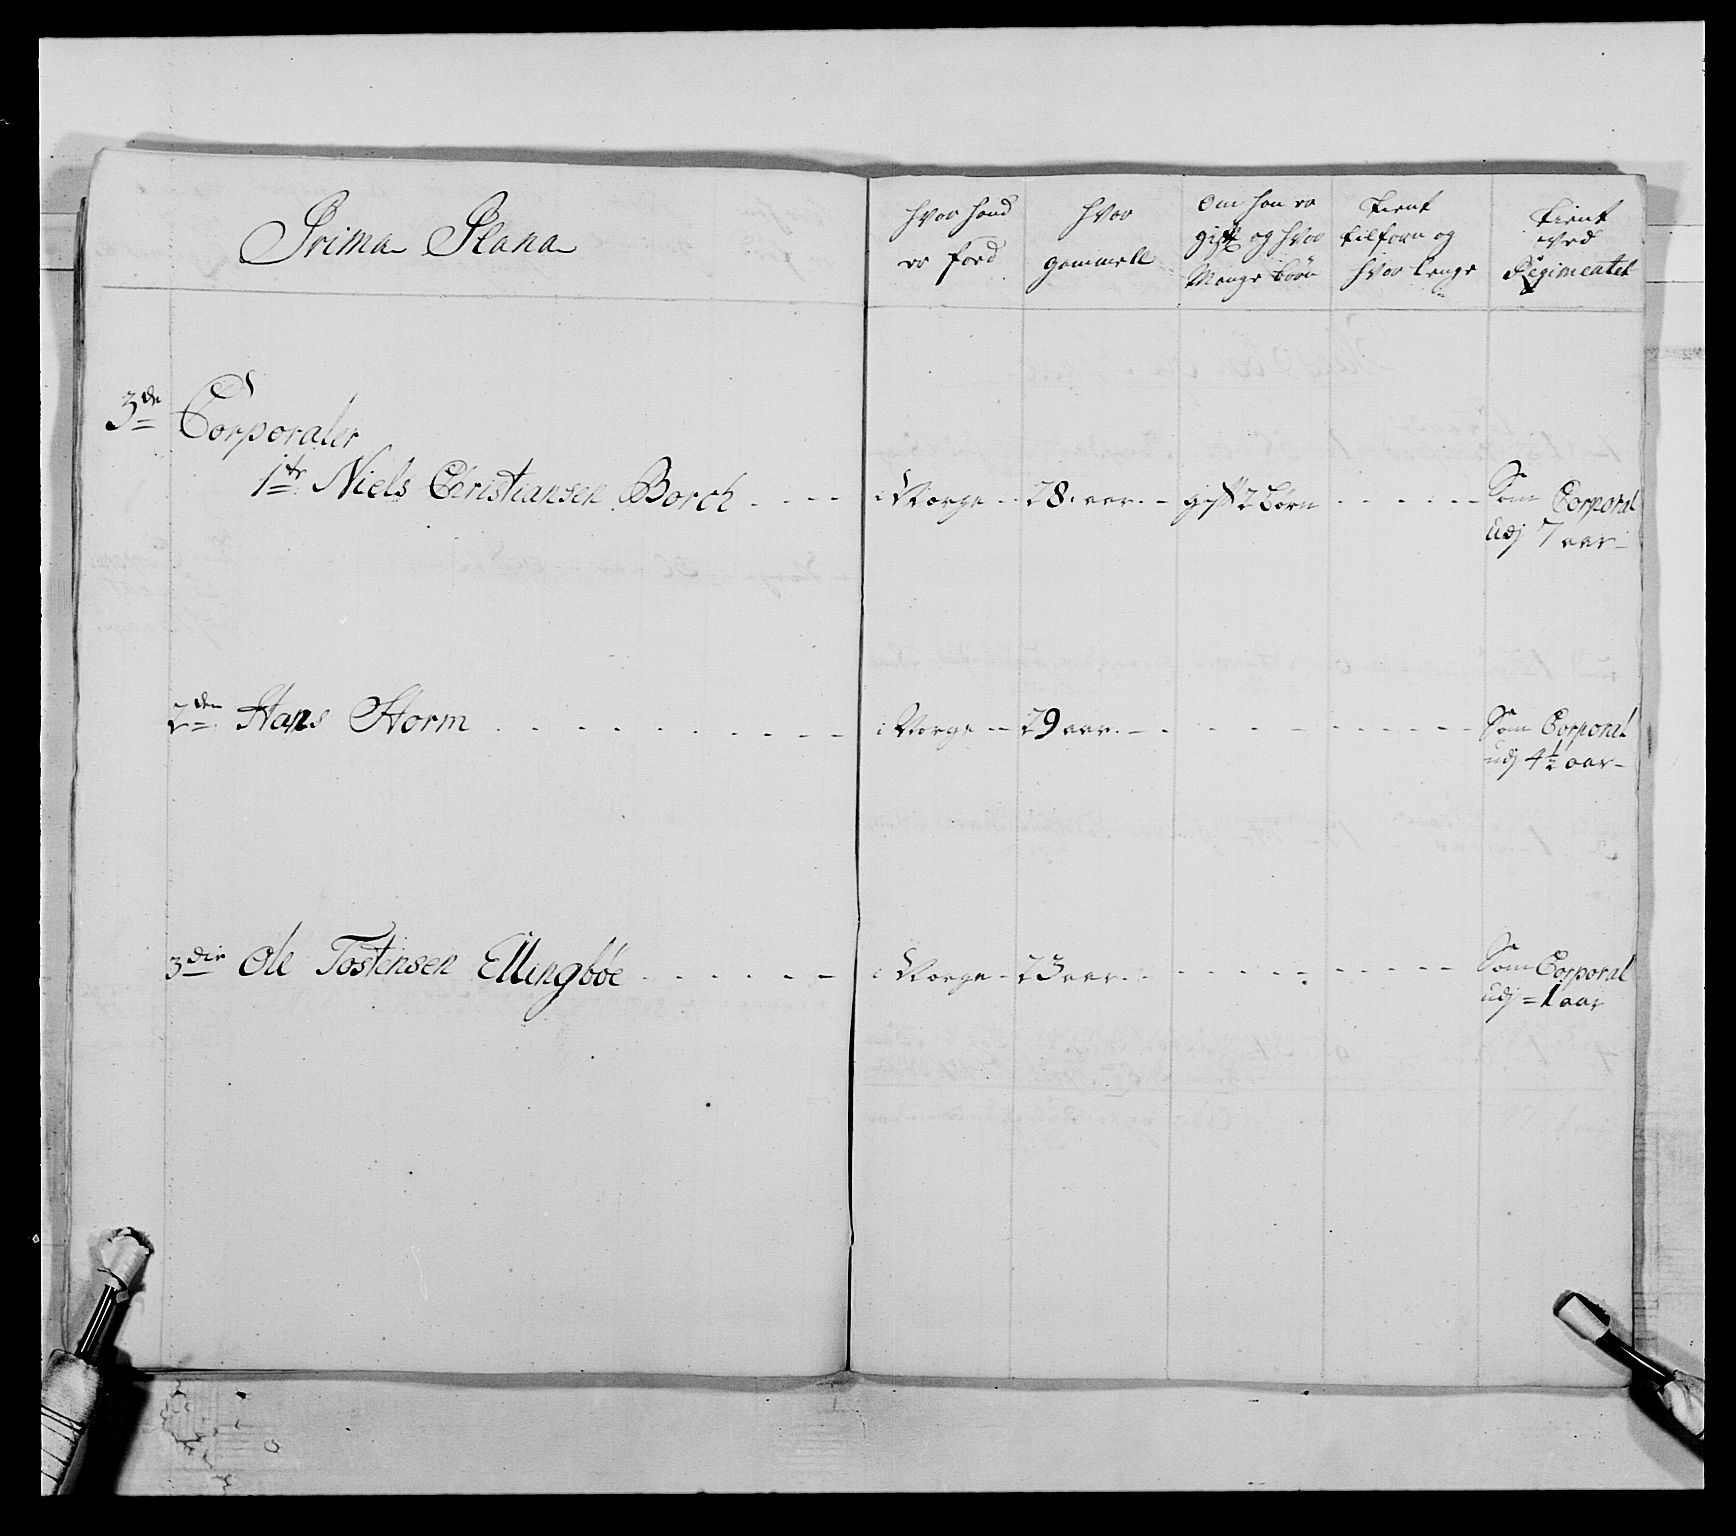 Prima Plana
hvor hand
er fød
hvor
gammell
om han er
gift og hvor
Mange børn
tient
tilforn og
hvor lenge
tient
ved
Regimentet
3de Corporaler
1te Niels Christiansen Borch - - - - i Norge - - 28. aar. - gift 2 børn - - - - - - Som Corporal
udj 7 aar -
2den Hans Storm - - - - - - - - - - i Norge - - 29 aar. - - - - - - - - - Som Corporal
udj 4½ aar -
3die Ole Tostensen Ellingbøe - - - - - - i Norge - 23 aar. - - - - - - - - - Som Corporal
udj = 1 aar